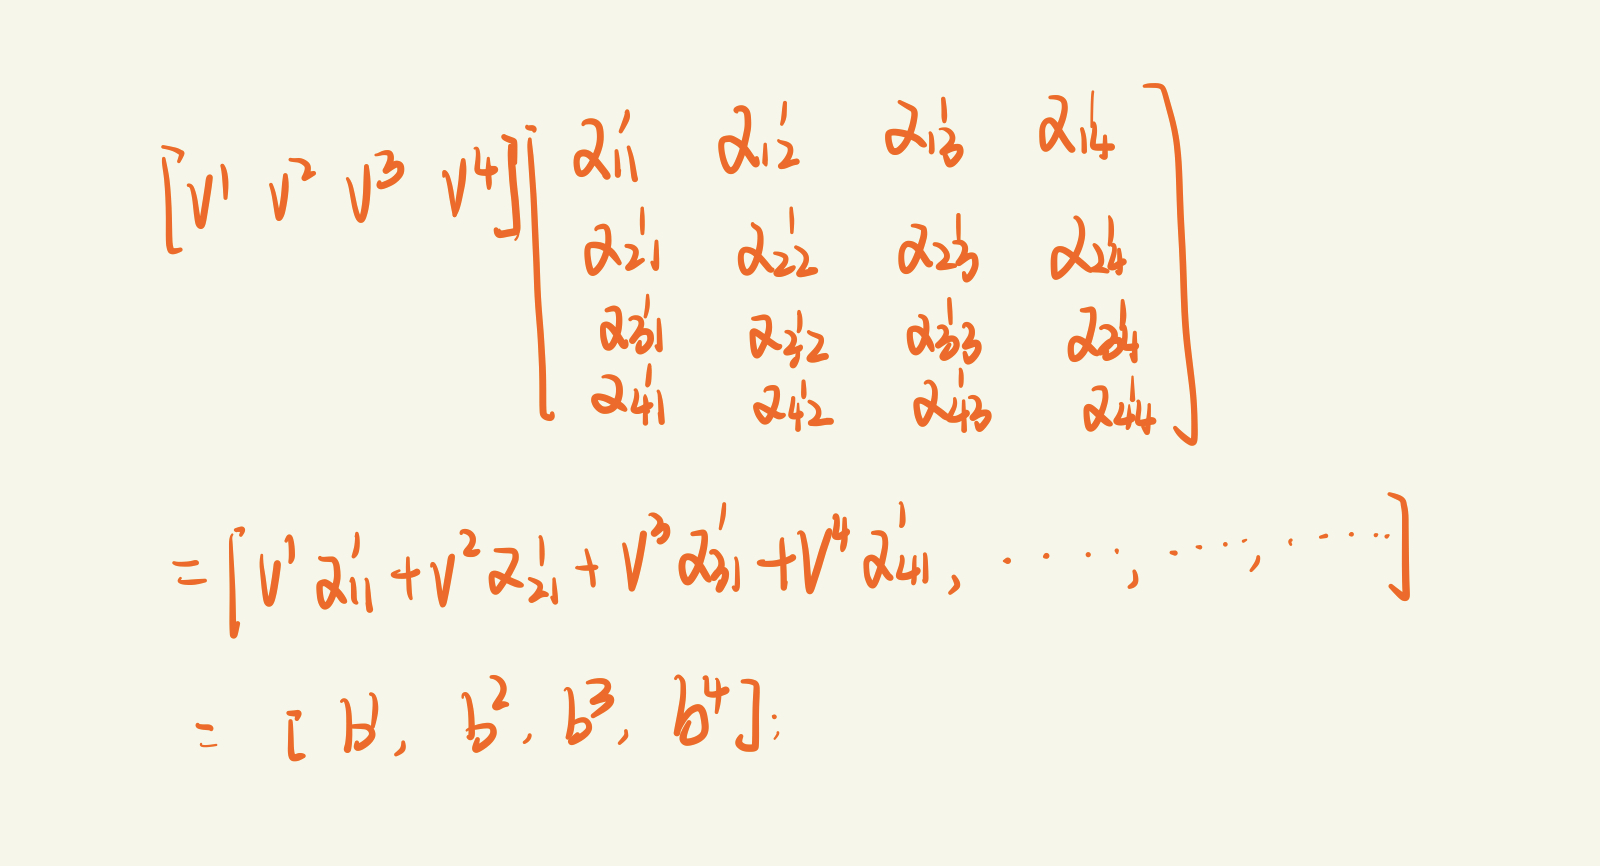 [v¹ v² v³ v⁴] [α'₁₁ α'₁₂ α'₁₃ α'₁₄
α'₂₁ α'₂₂ α'₂₃ α'₂₄
α'₃₁ α'₃₂ α'₃₃ α'₃₄
α'₄₁ α'₄₂ α'₄₃ α'₄₄]
= [v¹ α'₁₁ + v² α'₂₁ + v³ α'₃₁ + v⁴ α'₄₁, ····, ····, ·····]
= [b¹, b², b³, b⁴];